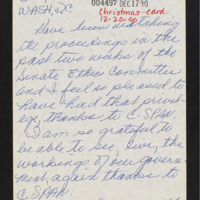 WASH, DC
004497 DEC 17 90
Christmas card
12-20-90
Have been watching
the proceedings in the
past two weeks of the
Senate Ethics Committee
and I feel so pleased to
have had that privi-
lege thanks to C-SPAN.
I am so grateful to
be able to see, live, the
workings of our Govern-
ment, again thanks to
C-SPAN.